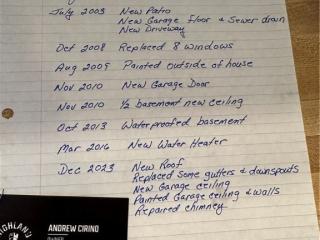 July 2003 New Patio
New Garage Floor & Sewer drain
New Driveway
Oct 2008 Replaced 8 windows
Aug 2009 Painted outside of house
Nov 2010 New Garage Door
Nov 2010 ½ basement new ceiling
Oct 2013 Waterproofed basement
Mar 2016 New Water Heater
Dec 2023 New Roof
Replaced Some gutters & downspouts
New Garage ceiling
Painted Garage ceiling & walls
Repaired chimney
HIGHLAND
ANDREW CIRINO